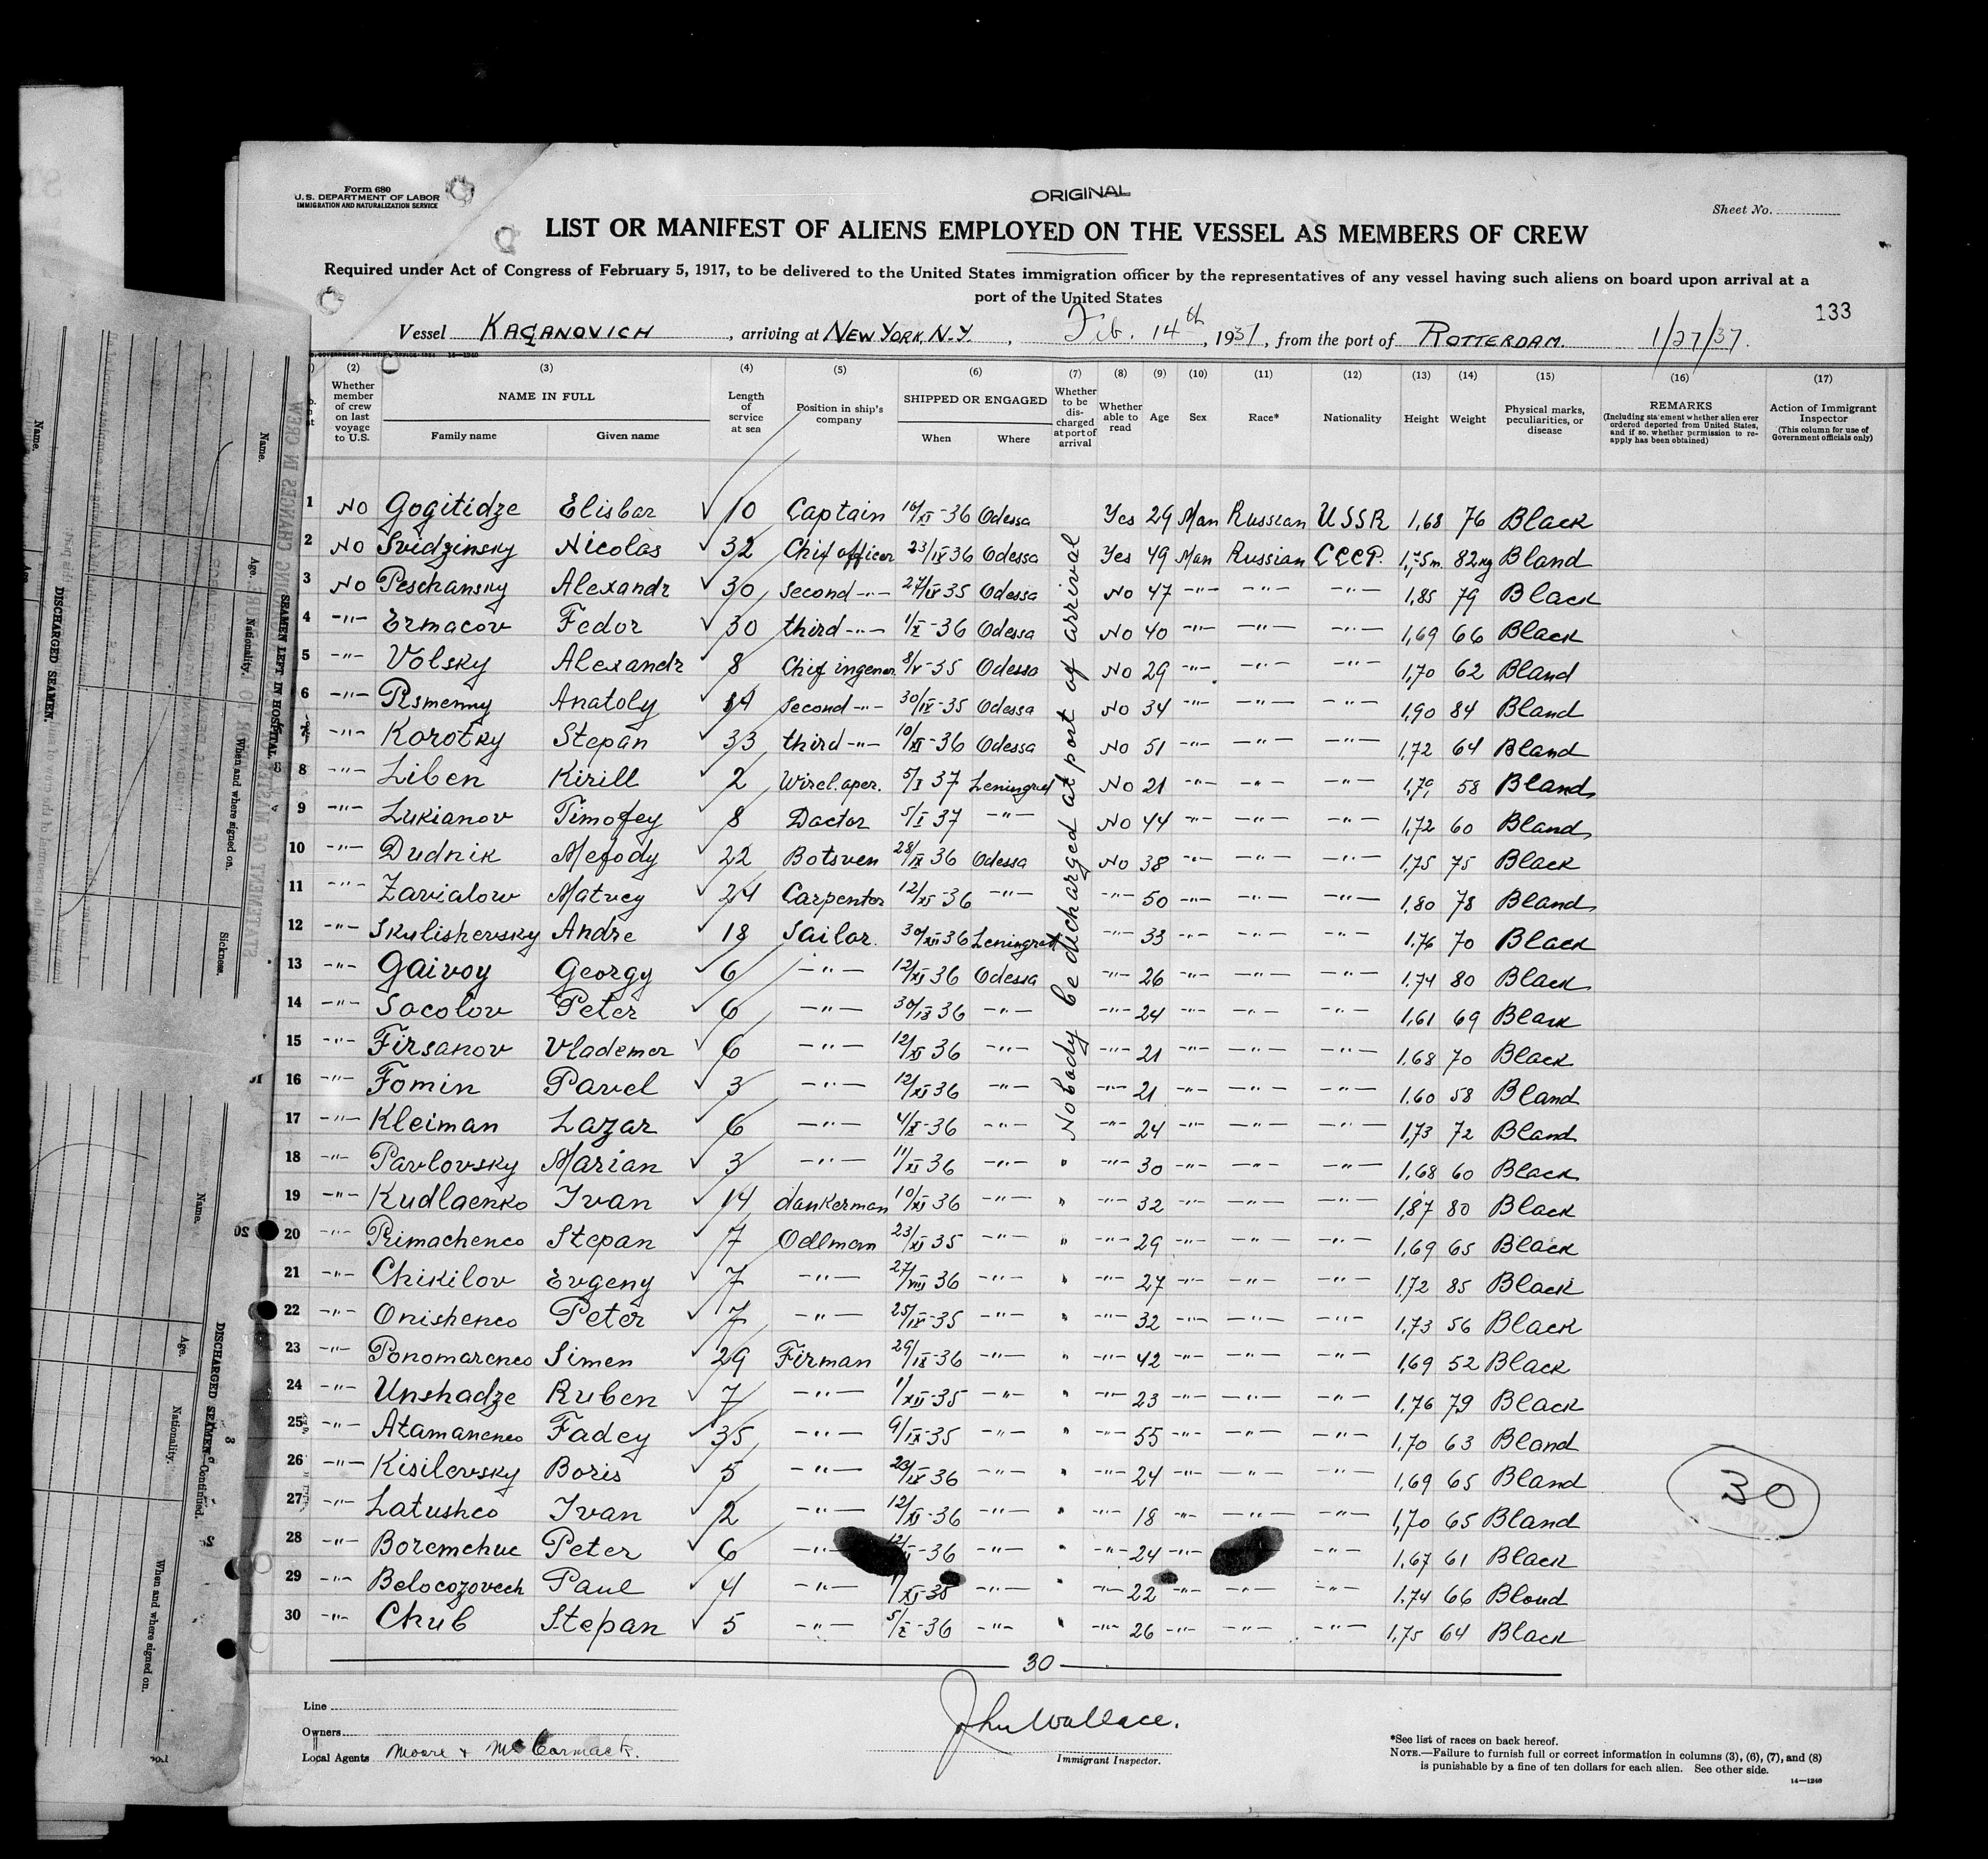 Form 680
U.S. DEPARTMENT OF LABOR
IMMIGRATION AND NATURALIZATION SERVICE
ORIGINAL
Sheet No.
LIST OR MANIFEST OF ALIENS EMPLOYED ON THE VESSEL AS MEMBERS OF CREW
Required under Act of Congress of February 5, 1917, to be delivered to the United States immigration officer by the representatives of any vessel having such aliens on board upon arrival at a
port of the United States
133
Vessel KAGANOVICH, arriving at NEW YORK, N.Y., Feb. 14th, 1937, from the port of ROTTERDAM. 1/27/37.
(2) (3) (4) (5) (6) (7) (8) (9) (10) (11) (12) (13) (14) (15) (16) (17)
Whether member of crew on last voyage to U.S. NAME IN FULL Family name Given name Length of service at sea Position in ship's company SHIPPED OR ENGAGED When Where Whether to be discharged at port of arrival Whether able to read Age Sex Race* Nationality Height Weight Physical marks, peculiarities, or disease REMARKS (Including statement whether alien ever ordered deported from United States, and if so, whether permission to reapply has been obtained) Action of Immigrant Inspector (This column for use of Government officials only)
Nobody be dicharged at port of arrival
1 No Gogitidze Elisbar ✓ 10 Captain 16/XI-36 Odessa Yes 29 Man Russian USSR 1,68 76 Black
2 No Svidzinsky Nicolas ✓ 32 Chif officer 23/IX 36 Odessa Yes 49 Man Russian CCCP. 82kg Bland
3 No Peschansky Alexandr ✓ 30 Second -"- 27/IX 35 Odessa No 47 -"- -"- -"- 1,85 79 Black
4 -"- Ermacov Fedor ✓ 30 third -"- 1/X-36 Odessa No 40 -"- -"- -"- 1,69 66 Black
5 -"- Volsky Alexandr ✓ 8 Chif ingener 8/V-35 Odessa No 29 -"- -"- -"- 1,70 62 Bland
6 -"- Rsmenny Anatoly ✓ 14 Second -"- 30/IX-35 Odessa No 34 -"- -"- -"- 1,90 84 Bland
7 -"- Korotky Stepan ✓ 33 third -"- 10/XI-36 Odessa No 51 -"- -"- -"- 1,72 64 Bland
8 -"- Liben Kirill ✓ 2 Wirel. oper. 5/I 37 Leningrad No 21 -"- -"- -"- 1,70 58 Bland
9 -"- Lukianov Timofey ✓ 8 Doctor 5/I 37 -"- No 44 -"- -"- -"- 1,72 60 Bland
10 -"- Dudnik Mefody ✓ 22 Botsven 28/IX 36 Odessa No 38 -"- -"- -"- 1,75 75 Black
11 -"- Zavialow Matvey ✓ 24 Carpenter 12/XI-36 -"- -"- 50 -"- -"- -"- 1,80 78 Bland
12 -"- Skulishevsky Andre ✓ 18 Sailor. 30/XII 36 Leningrad -"- 33 -"- -"- -"- 1,76 70 Black
13 -"- Gaivoy Georgy ✓ 6 -"- 12/XI 36 Odessa -"- 26 -"- -"- -"- 1,74 80 Black
14 -"- Socolov Peter ✓ 6 -"- 30/IX 36 -"- -"- 24 -"- -"- -"- 1,61 69 Black
15 -"- Firsanov Vlademer ✓ 6 -"- 12/XI 36 -"- -"- 21 -"- -"- -"- 1,68 70 Black
16 -"- Fomin Pavel ✓ 3 -"- 12/XI 36 -"- -"- 21 -"- -"- -"- 1.60 58 Bland
17 -"- Kleiman Lazar ✓ 6 -"- 4/X-36 -"- -"- 24 -"- -"- -"- 1,73 72 Bland
18 -"- Pavlovsky Marian ✓ 3 -"- 11/XI 36 -"- " -"- 30 -"- -"- -"- 1,68 60 Black
19 -"- Kudlaenko Ivan ✓ 14 dankerman 10/XI 36 -"- " -"- 32 -"- -"- -"- 1,87 80 Black
20 -"- Rimachenco Stepan ✓ 7 Oellman 23/XI 35 -"- " -"- 29 -"- -"- -"- 1,69 65 Black
21 -"- Chikilov Evgeny ✓ 7 -"- 27/VIII 36 -"- " -"- 27 -"- -"- -"- 1,72 85 Black
22 -"- Onishenco Peter ✓ 7 -"- 25/IX-35 -"- " -"- 32 -"- -"- -"- 1,73 56 Black
23 -"- Ponomarenco Simen ✓ 29 Firman 29/IX-36 -"- " -"- 42 -"- -"- -"- 1,69 52 Black
24 -"- Unshadze Ruben ✓ 7 -"- 1/XII-35 -"- " -"- 23 -"- -"- -"- 1,76 79 Black
25 -"- Atamanenco Fadey ✓ 35 -"- 9/IX-35 -"- " -"- 55 -"- -"- -"- 1,70 63 Bland
26 -"- Kisilevsky Boris ✓ 5 -"- 23/IX 36 -"- " -"- 24 -"- -"- -"- 1,69 65 Bland
27 -"- Latushco Ivan ✓ 2 -"- 12/XI-36 -"- " -"- 18 -"- -"- -"- 1,70 65 Bland
28 -"- Boremchuc Peter ✓ 6 -"- -36 -"- " -"- 24 -"- -"- 1,67 61 Black
29 -"- Belocozovech Paul ✓ 4 -"- -"- " -"- 22 -"- -"- -"- 1,74 66 Bloud
30 -"- Chub Stepan ✓ 5 -"- 5/X-36 -"- " -"- 26 -"- -"- -"- 1,75 64 Black
30
30
Line
Owners
Local Agents Moore & McCormack.
John Wallace.
Immigrant Inspector.
*See list of races on back hereof.
NOTE.—Failure to furnish full or correct information in columns (3), (6), (7), and (8)
is punishable by a fine of ten dollars for each alien. See other side.
14—1240
Name.
DISCHARGED SEAMEN.
Name.
Age.
Nationality.
When and where signed on.
Sickness.
SEAMEN LEFT IN HOSPITAL.
Name.
Age.
Nationality.
When and where signed on.
DISCHARGED SEAMEN—Continued.